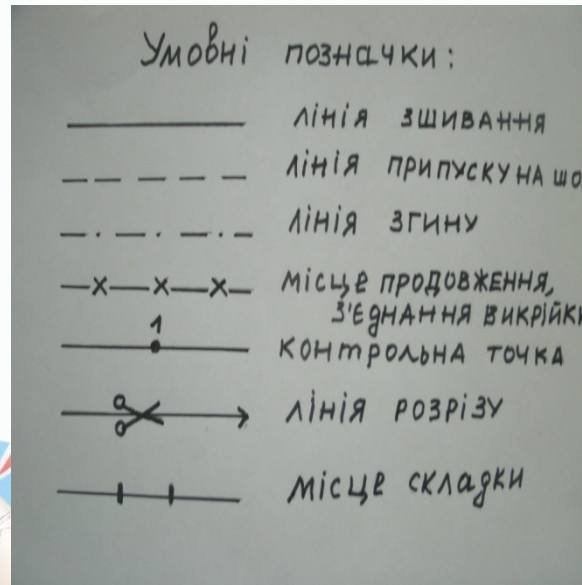 Умовні позначки:
лінія зшивання
лінія припуску на шо
лінія згину
місце продовження,
з'єднання викрійки
1
контрольна точка
лінія розрізу
місце складки